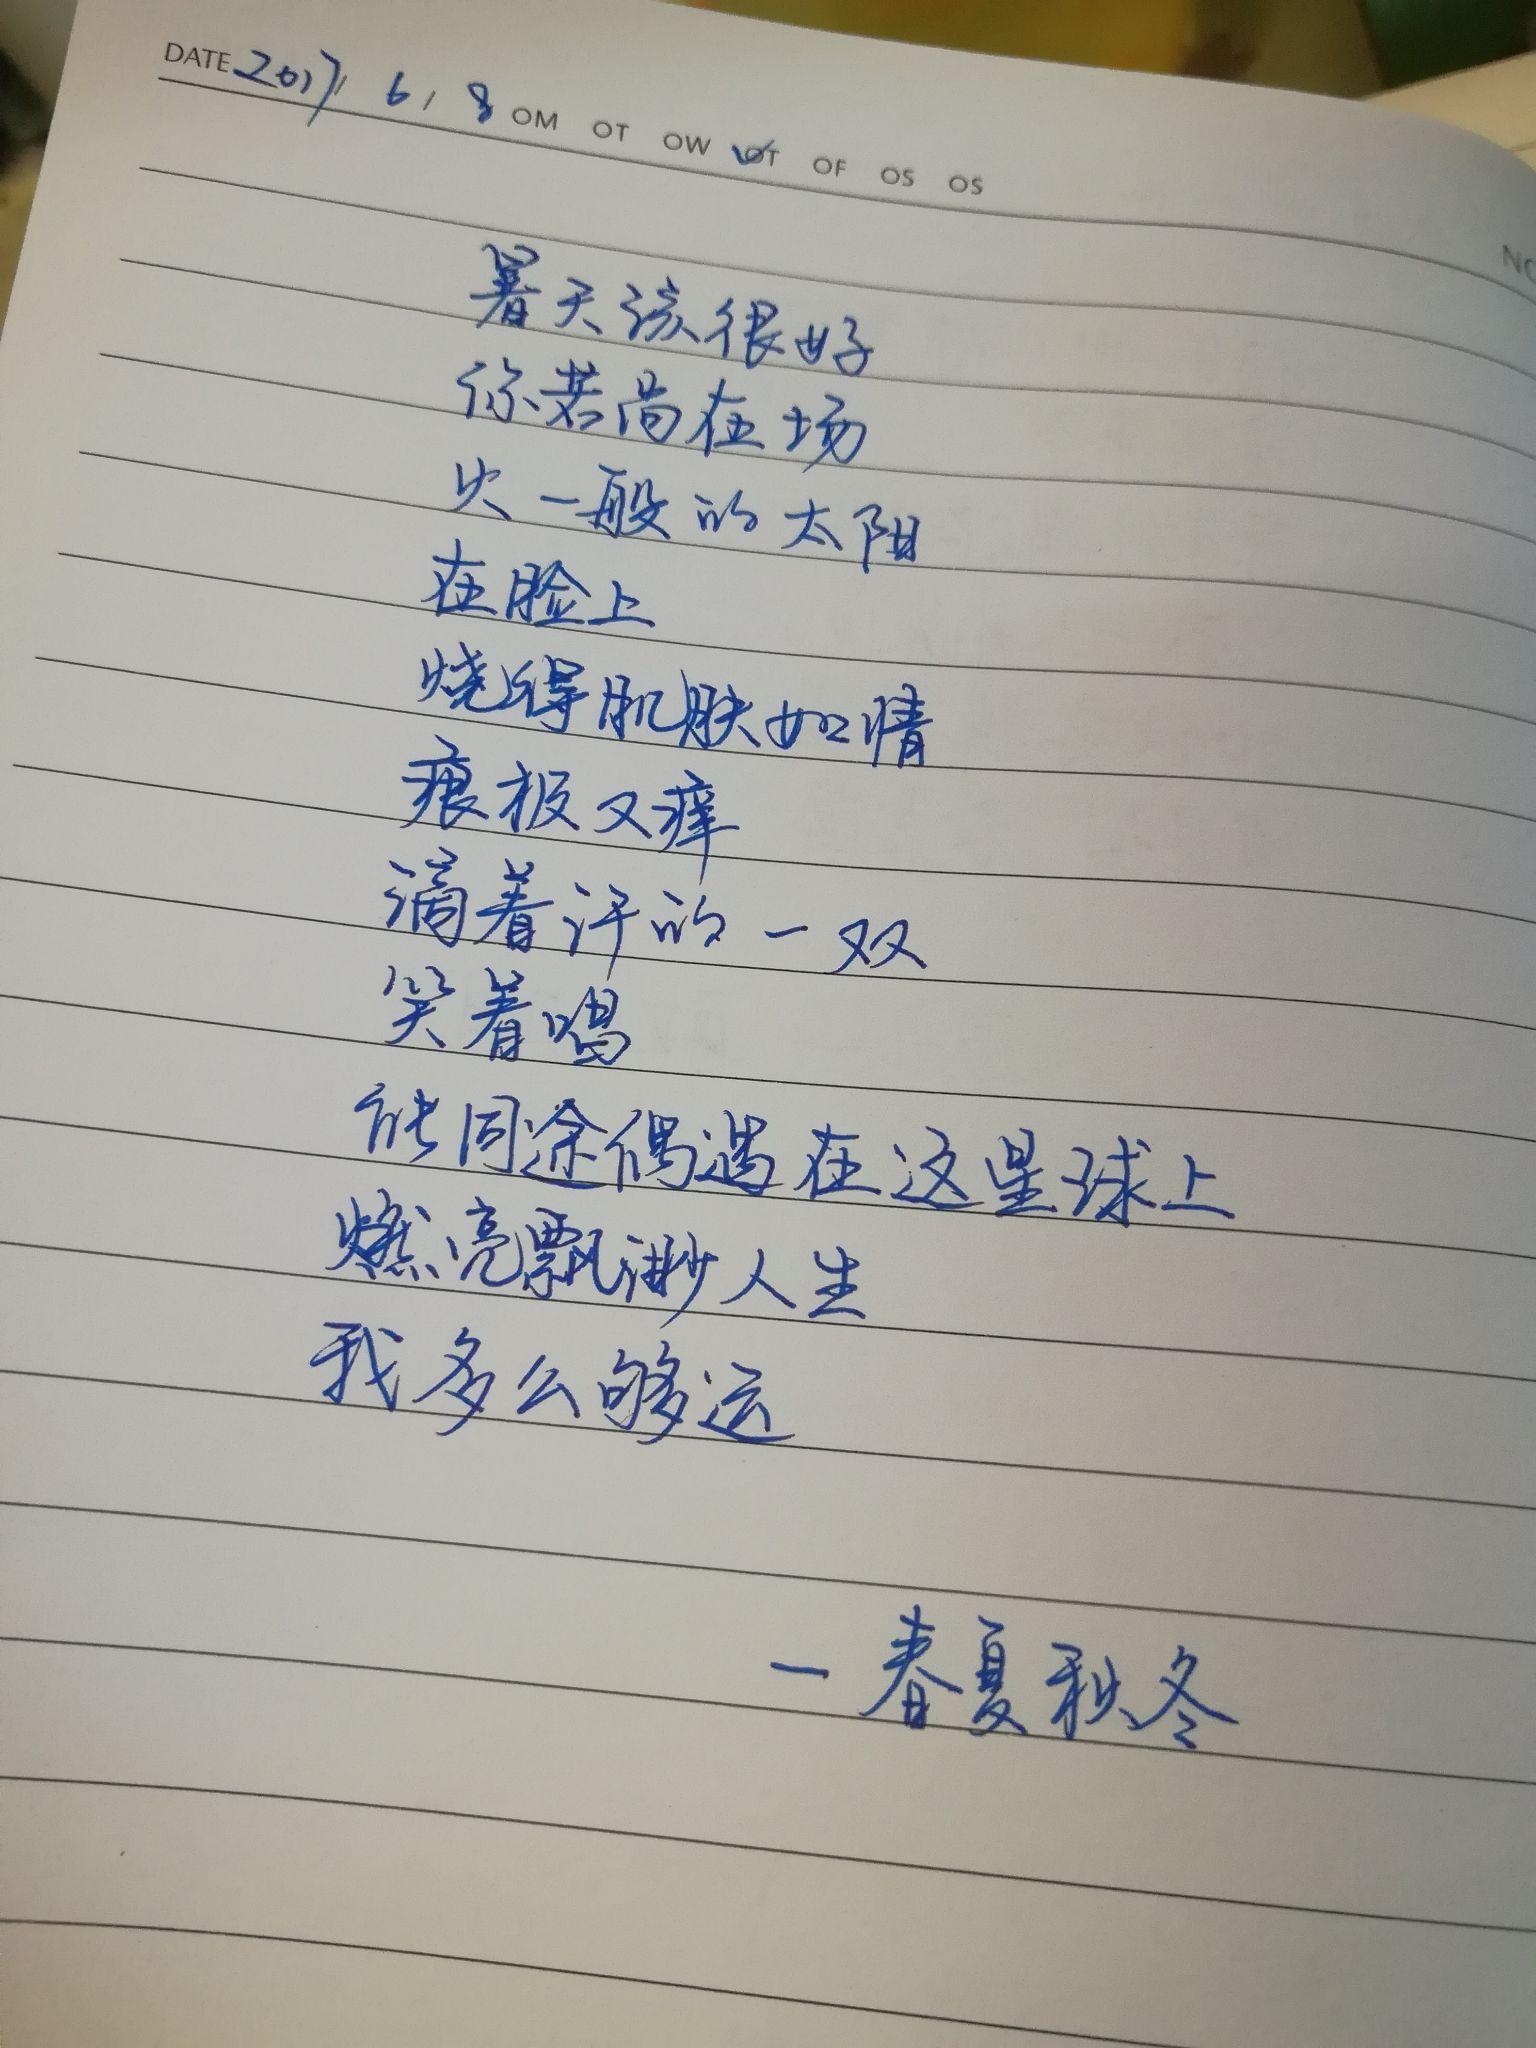 DATE 2017/ 6 / 8 OM OT OW OT OF OS OS
NO
暑天该很好
你若尚在场
火一般的太阳
在脸上
烧得肌肤如情
痕极又痒
滴着汗的一双
笑着喝
能同途偶遇在这星球上
燃亮飘渺人生
我多么够运
一春夏秋冬